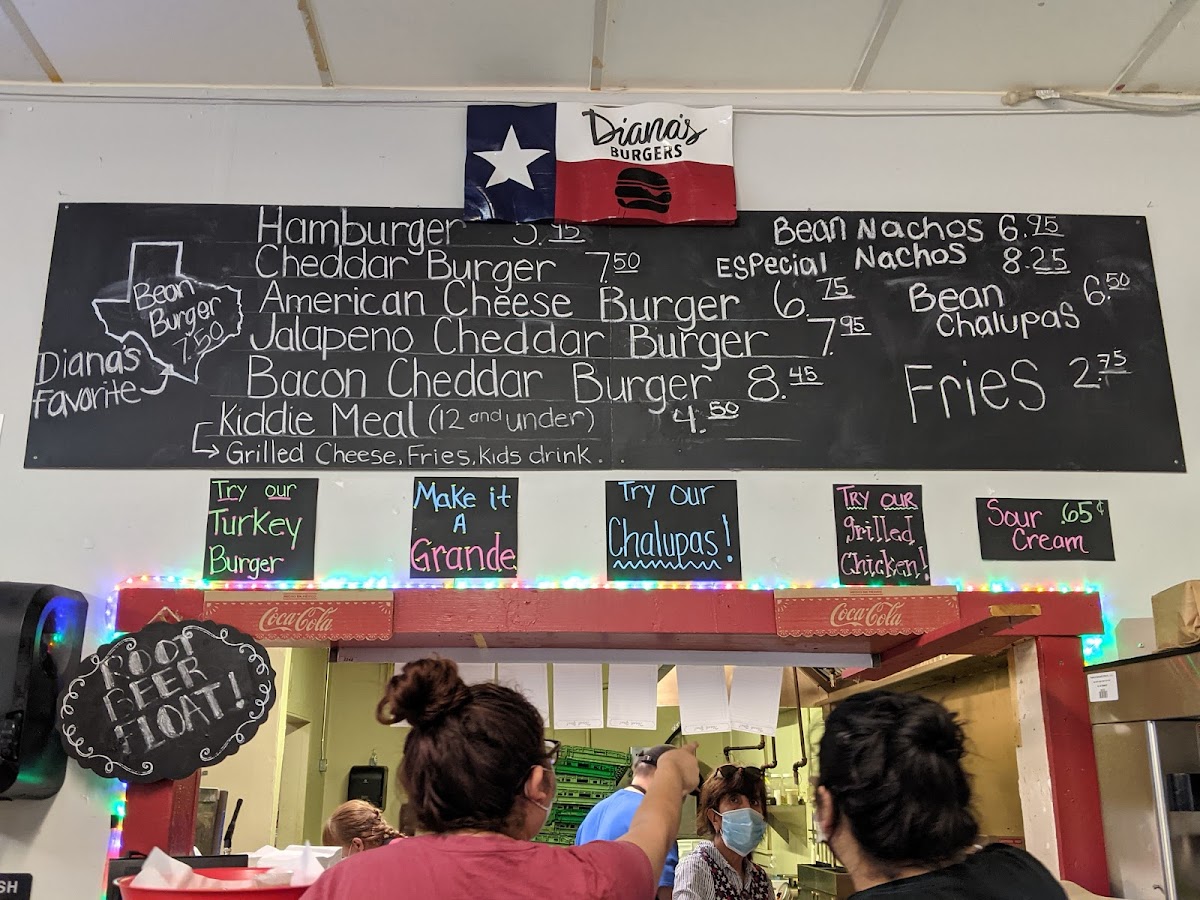 Diana's
BURGERS
Hamburger
Cheddar Burger 7.50
American Cheese Burger 6.75
Jalapeno Cheddar Burger 7.95
Bacon Cheddar Burger 8.45
Kiddie Meal (12 and under) 4.50
Grilled Cheese, Fries, Kids drink..
Bean
Burger
7.50
Diana's
favorite
Bean Nachos 6.95
Especial Nachos 8.25
Bean Chalupas 6.50
Fries 2.75
Try our
Turkey
Burger
Make it
A
Grande
Try our
Chalupas!
Try our
grilled
Chicken!
Sour .65¢
Cream
Coca-Cola
Coca-Cola
ROOT
BEER
FLOAT!
SH